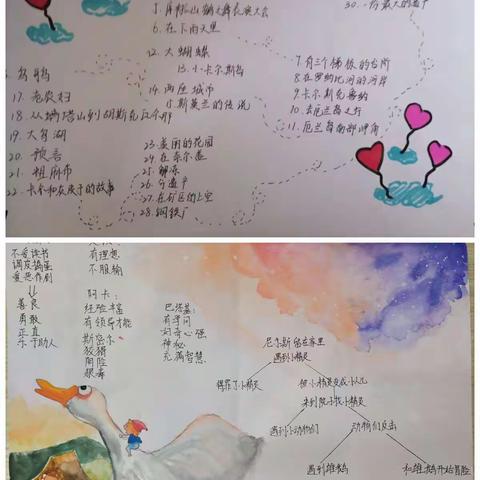 5. 库勒山的鹤之舞表演大会
6. 在下雨天里
30. 一份最大的遗产
12. 大蝴蝶
13. 小卡尔斯岛
14. 两座城市
15. 斯莫兰的传说
7. 有三个梯级的台阶
8. 在罗纳比河的河岸
9. 卡尔斯克鲁纳
10. 去厄兰岛之行
11. 厄兰岛南部岬角
16. 乌鸦
17. 老农妇
18. 从塔山到胡斯克瓦那
19. 大鸟湖
20. 预言
21. 粗麻布
22. 卡尔和灰皮子的故事
23. 美丽的花园
24. 在奈尔盖
25. 解冻
26. 分遗产
27. 在矿区的上空
28. 钢铁厂
不爱读书
调皮捣蛋
爱恶作剧
善良
勇敢
正直
乐于助人
有理想
不服输
阿卡:
经验丰富
有领导才能
斯密尔
狡猾
阴险
狠毒
巴塔基:
有学问
好奇心强
神秘
充满智慧
尼尔斯留在家里
遇到小精灵
得罪了小精灵
被小精灵变成小人儿
来到院子找小精灵
遇到小动物们
动物们反击
遇到雄鹅
和雄鹅开始冒险